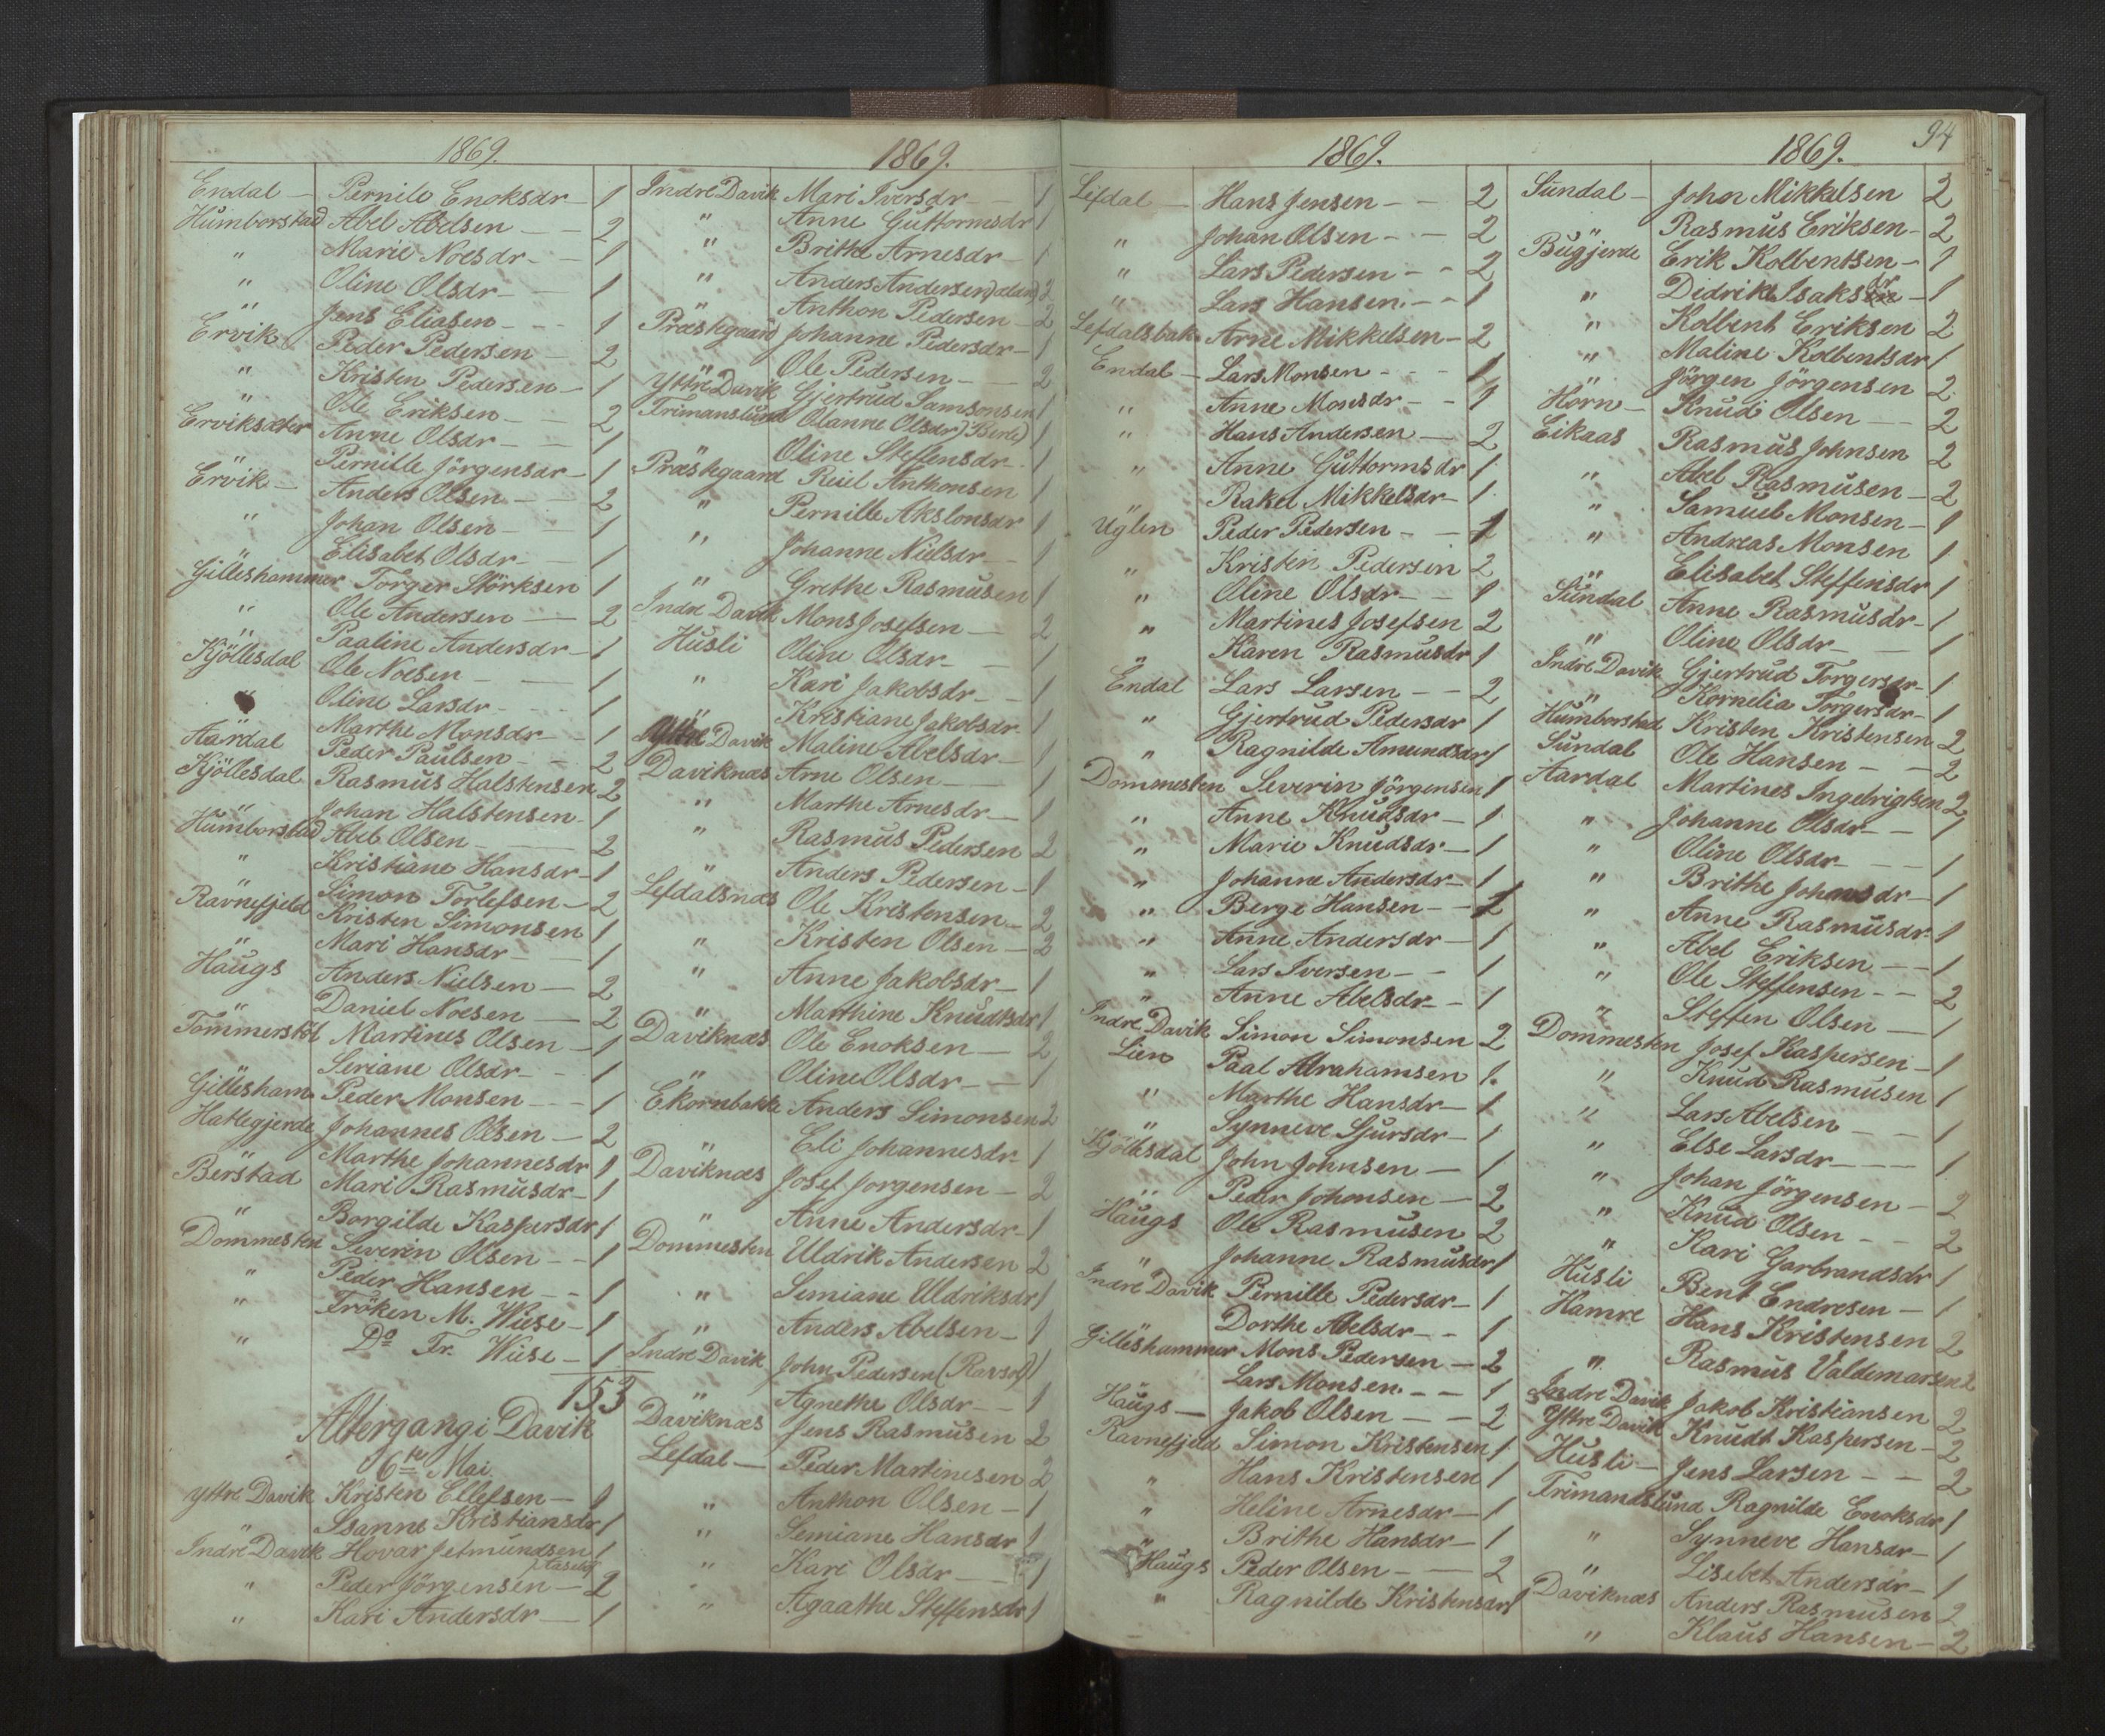 1869.
Endal – Pernile Enoksdr – 1
Humborstad Abel Abelsen – – 2
" Marie Noesdr – – 1
" Oline Olsdr – – 1
" Jens Eliasen – – – 1
Ervik Peder Pedersen – 2
" Kristen Pedersen – 1
" Ole Eriksen – – 2
Erviksæter Anne Olsdr – – 1
" Pernille Jörgensdr – 1
Ervik – Anders Olsen – – 2
" Johan Olsen – – 1
" Elisabet Olsdr – – 1
Gilleshammer Torger Störksen 1
" Ole Andersen – 2
" Paaline Andersdr – 1
Kjöllesdal Ole Noesen – – 1
" Oline Larsdr – – – 1
" Marthe Monsdr – – 1
Aardal Peder Paulsen – – 2
Kjöllesdal Rasmus Halstensen 2
" Johan Halstensen – 1
Humborstad Abel Olsen – – 2
" Kristiane Hansdr – 1
Ravnefjeld Simon Torlefsen – 2
" Kristen Simonsen 1
" Mari Hansdr – – 1
Haugs Anders Nielsen – 2
" Daniel Noesen – 2
Tömmerstöl Martines Olsen – 1
" Seriane Olsdr – – 1
Gillesham Peder Monsen – – – 1
Hattegjerde Johannes Olsen – 2
" Marthe Johannesdr 1
Berstad Mari Rasmusdr – 1
" Borgilde Kaspersdr 1
Dommesten Severin Olsen – – 1
" Peder Hansen – – 1
" Fröken M. Wiese – 1
" Do Fr. Wiese – 1
153
Altergang i Davik
6te Mai
Yttre Davik Kristen Ellefsen – 1
" Susanne Kristiansdr 1
Indre Davik Hovar Jetmundsen 1
" Peder Jörgensen – 2
" Kari Andersdr – 1
1869.
Indre Davik Mari Iversdr – 1
" Anne Guttormsdr 1
" Brithe Arnesdr – 1
" Anders Andersen) 2
" Anthon Pedersen – 2
Præstegaard Johanne Pedersdr – 1
" Ole Pedersen – – 2
Yttre Davik Gjertrud Samsonsen 1
Frimanslund Olanne Olsdr) Berle) 1
" Oline Steffensdr – 1
Præstegaard Reiel Anthonsen 1
" Pernille Akslonsdr 1
" Johanne Nielsdr – 1
" Grethe Rasmusen 1
Indre Davik Mons Josefsen – 2
Husli Oline Olsdr – – 1
" Kari Jakobsdr – – 1
" Kristiane Jakobsdr 1
Yttre Davik Maline Abelsdr – 1
Daviknæs Arne Olsen – – 1
" Marthe Arnesdr – 1
" Rasmus Pedersen 2
" Anders Pedersen – 1
Lefdalsnæs Ole Kristensen – 2
" Kristen Olsen – 2
" Anne Jakobsdr – 1
" Marthine Knudtsdr 1
Daviknæs Ole Enoksen – 2
" Oline Olsdr – – 1
Ekornbakke Anders Simonsen 2
" Eli Johannesdr – 1
Daviknæs Josef Jorgensen – 2
" Anne Andersdr – 1
Dommesten Uldrik Andersen 2
" Semiane Uldriksdr 1
" Anders Abelsen – 1
Indre Davik John Pedersen (Ravsol) 1
" Agnethe Olsdr – – 1
Daviknæs Jens Rasmusen 2
Lefdal – Peder Martinesen 2
" Anthon Olsen – 1
" Semiane Hansdr 1
" Kari Olsdr – – 1
" Agaathe Steffensdr 1
94
1869.
Lefdal – Hans Jensen – – 2
" Johan Olsen – – 2
" Lars Pedersen – – 2
" Lars Hansen. – – 1
Lefdalsbak. Arne Mikkelsen – 2
Endal – Lars Monsen – – – 1
" Anne Monsdr – – 1
" Hans Andersen – 2
" Anne Guttormsdr 1
" Rakel Mikkelsdr – 1
Uglen Peder Pedersen – – 1
" Kristen Pedersen 2
" Oline Olsdr – – 1
" Martines Josefsen 2
" Karen Rasmusdr 1
Endal Lars Larsen – – 2
" Gjertrud Pedersdr 1
" Ragnilde Amundsdr 1
Dommesten Severin Jörgensen 1
" Anne Knudsdr – 1
" Marie Knudsdr – 1
" Johanne Andersdr – 1
" Berge Hansen – – 2
" Anne Andersdr – 1
" Lars Iversen – – 1
" Anne Abelsdr – – 1
Indre Davik Simon Simonsen 2
Lien Paal Abrahamsen 1.
" Marthe Hansdr – 1
" Synneve Sjursdr – 1
Kjöllesdal John Johnsen – 1
" Peder Johonsen – 2
Haugs Ole Rasmusen 2
" Johanne Rasmusdr 1
Indre Davik Pernille Pedersdr – 1
Dorthe Abelsdr – – 1
Gilleshammer Mons Pedersen – 2
Lars Monsen. – – 1
Haugs – Jakob Olsen – – 2
Ravnefjeld Simon Kristensen 1
" Hans Kristensen 1
" Heline Arnesdr – 1
" Brithe Hansdr – 1
Haugs Peder Olsen – – 2
" Ragnilde Kristensdr 1
1869.
Sundal – John Mikkelsen 2
" Rasmus Eriksen – 2
Bugjerde Erik Kolbentsen – 1
" Dedrik Isaksdr – 1
" Kolbent Eriksen 2
" Maline Kolbentsdr 1
" Jörgen Jörgensen 2
Horn – Knud Olsen – – 2
Eikaas Rasmus Johnsen 2
" Abel Rasmusen – 2
" Samuel Monsen – 1
" Andreas Monsen 1
" Elisabet Steffensdr 1
Sundal Anne Rasmusdr – 1
" Oline Olsdr – 1
Indre Davik Gjertrud Torgersdr – 1
" Kornelia Torgersdr – 1
Humborstad Kristen Kristensen 2
Sundal Ole Hansen – – 2
Aardal Martines Ingebrigtsen 2
" Johanne Olsdr – – 1
" Oline Olsdr – – – 1
" Brithe Johansdr – 1
" Anne Rasmusdr – 1
" Abel Eriksen – – 1
" Ole Steffensen – – 2
" Steffen Olsen – 1
Dommesten Josef Kaspersen – 1
" Knud Rasmusen 1
" Lars Abelsen – – 1
" Else Larsdr – – – 1
" Johan Jörgensen – 2
" Knud Olsen – – 2
" Kari Garbrandsdr 1
Husli Bent Endresen – 1
Hamre Hans Kristensen 2
" Rasmus Valdemarsen 2
Indre Davik Jakob Kristiansen 2
Yttre Davik Knudt Kaspersen – 2
Husli – Jens Larsen – – 2
Frimandslund Ragnilde Enoksdr 1
" Synneve Hansdr – 1
" Lisebet Andersdr – 1
Daviknæs Anders Rasmusen 2
" Klaus Hansen – 2